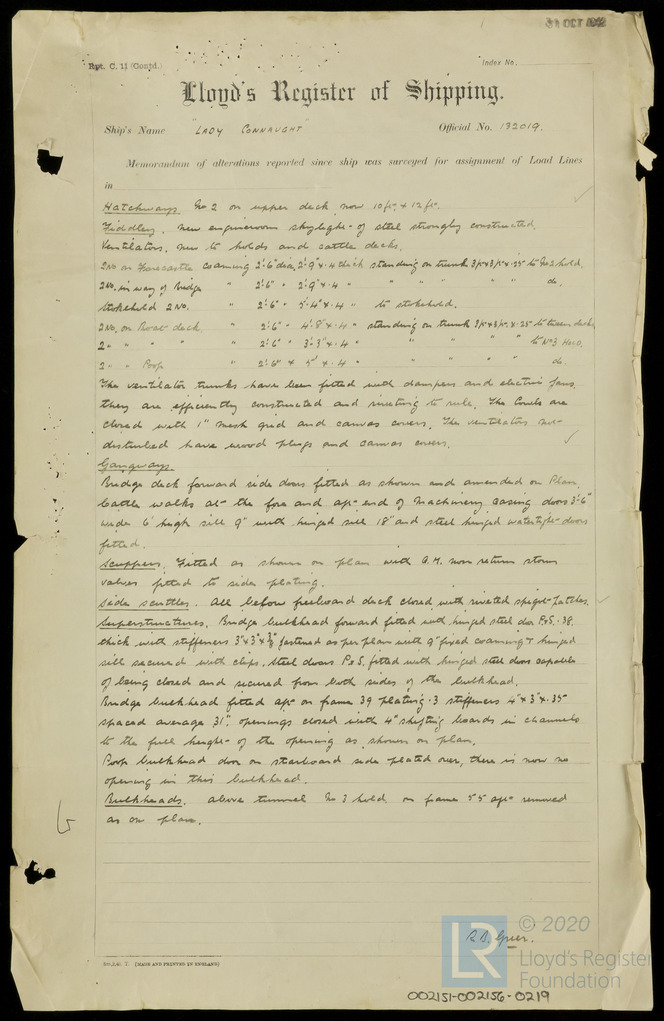 Rpt. C. 11 (Contd.)
Index No.
Lloyd's Register of Shipping.
Ship's Name "LADY CONNAUGHT" Official No. 132019.
Memorandum of alterations reported since ship was surveyed for assignment of Load Lines
in
Hatchways. No 2 on upper deck now 10ft. x 12ft.
Fiddley. New engineroom skylight of steel strongly constructed.
Ventilators. New to holds and cattle decks.
2 No. on Forecastle coaming 2'-6" dia, 2'-9" x .4 thick standing on trunk to No 2 hold.
2 No. in way of Bridge " 2'-6" " 2'-9" x .4 " " " " do.
Stokehold 2 No. " 2'-6" " 5'-4" x .4 " to stokehold.
2 No. on Boat deck " 2'-6" " 4'-8" x .4 " standing on trunk to tween decks
2 " " " " 2'-6" " 3'-3" x .4 " " " " " to No 3 Hold.
2 " " Poop " 2'-6" x 5' x .4 " " " " do.
The ventilator trunks have been fitted with dampers and electric fans,
they are efficiently constructed and riveting to rule. The Cowls are
closed with 1" mesh grid and canvas covers. The ventilators not
disturbed have wood plugs and canvas covers.
Gangways.
Bridge deck forward side doors fitted as shown and amended on Plan,
Cattle walks at the fore and aft end of Machinery Casing doors 3'-6"
wide 6' high sill 9" with hinged sill 18" and steel hinged watertight doors
fitted.
Scuppers. Fitted as shown on plan with G.M. non return storm
valves fitted to side plating.
Side scuttles. All below freeboard deck closed with riveted spigot patches.
Superstructures. Bridge bulkhead forward fitted with hinged steel door P&S. .38
thick with stiffeners 3" x 3" x 3/8 fastened as per plan with 9" fixed coaming & hinged
sill secured with clips. Steel doors P&S. fitted with hinged steel doors capable
of being closed and secured from both sides of the bulkhead.
Bridge bulkhead fitted aft on frame 39 plating .3 stiffeners 4" x 3" x .35
spaced average 31", openings closed with 4" shifting boards in channels
to the full height of the opening as shown on plan.
Poop bulkhead door on starboard side plated over, there is now no
opening in this bulkhead.
Bulkheads. above tunnel No 3 hold on frame 55 aft removed
as on plan.
R.B. Grier.
(MADE AND PRINTED IN ENGLAND)
LR
© 2020
Lloyd's Register
Foundation
002151-002156-0219